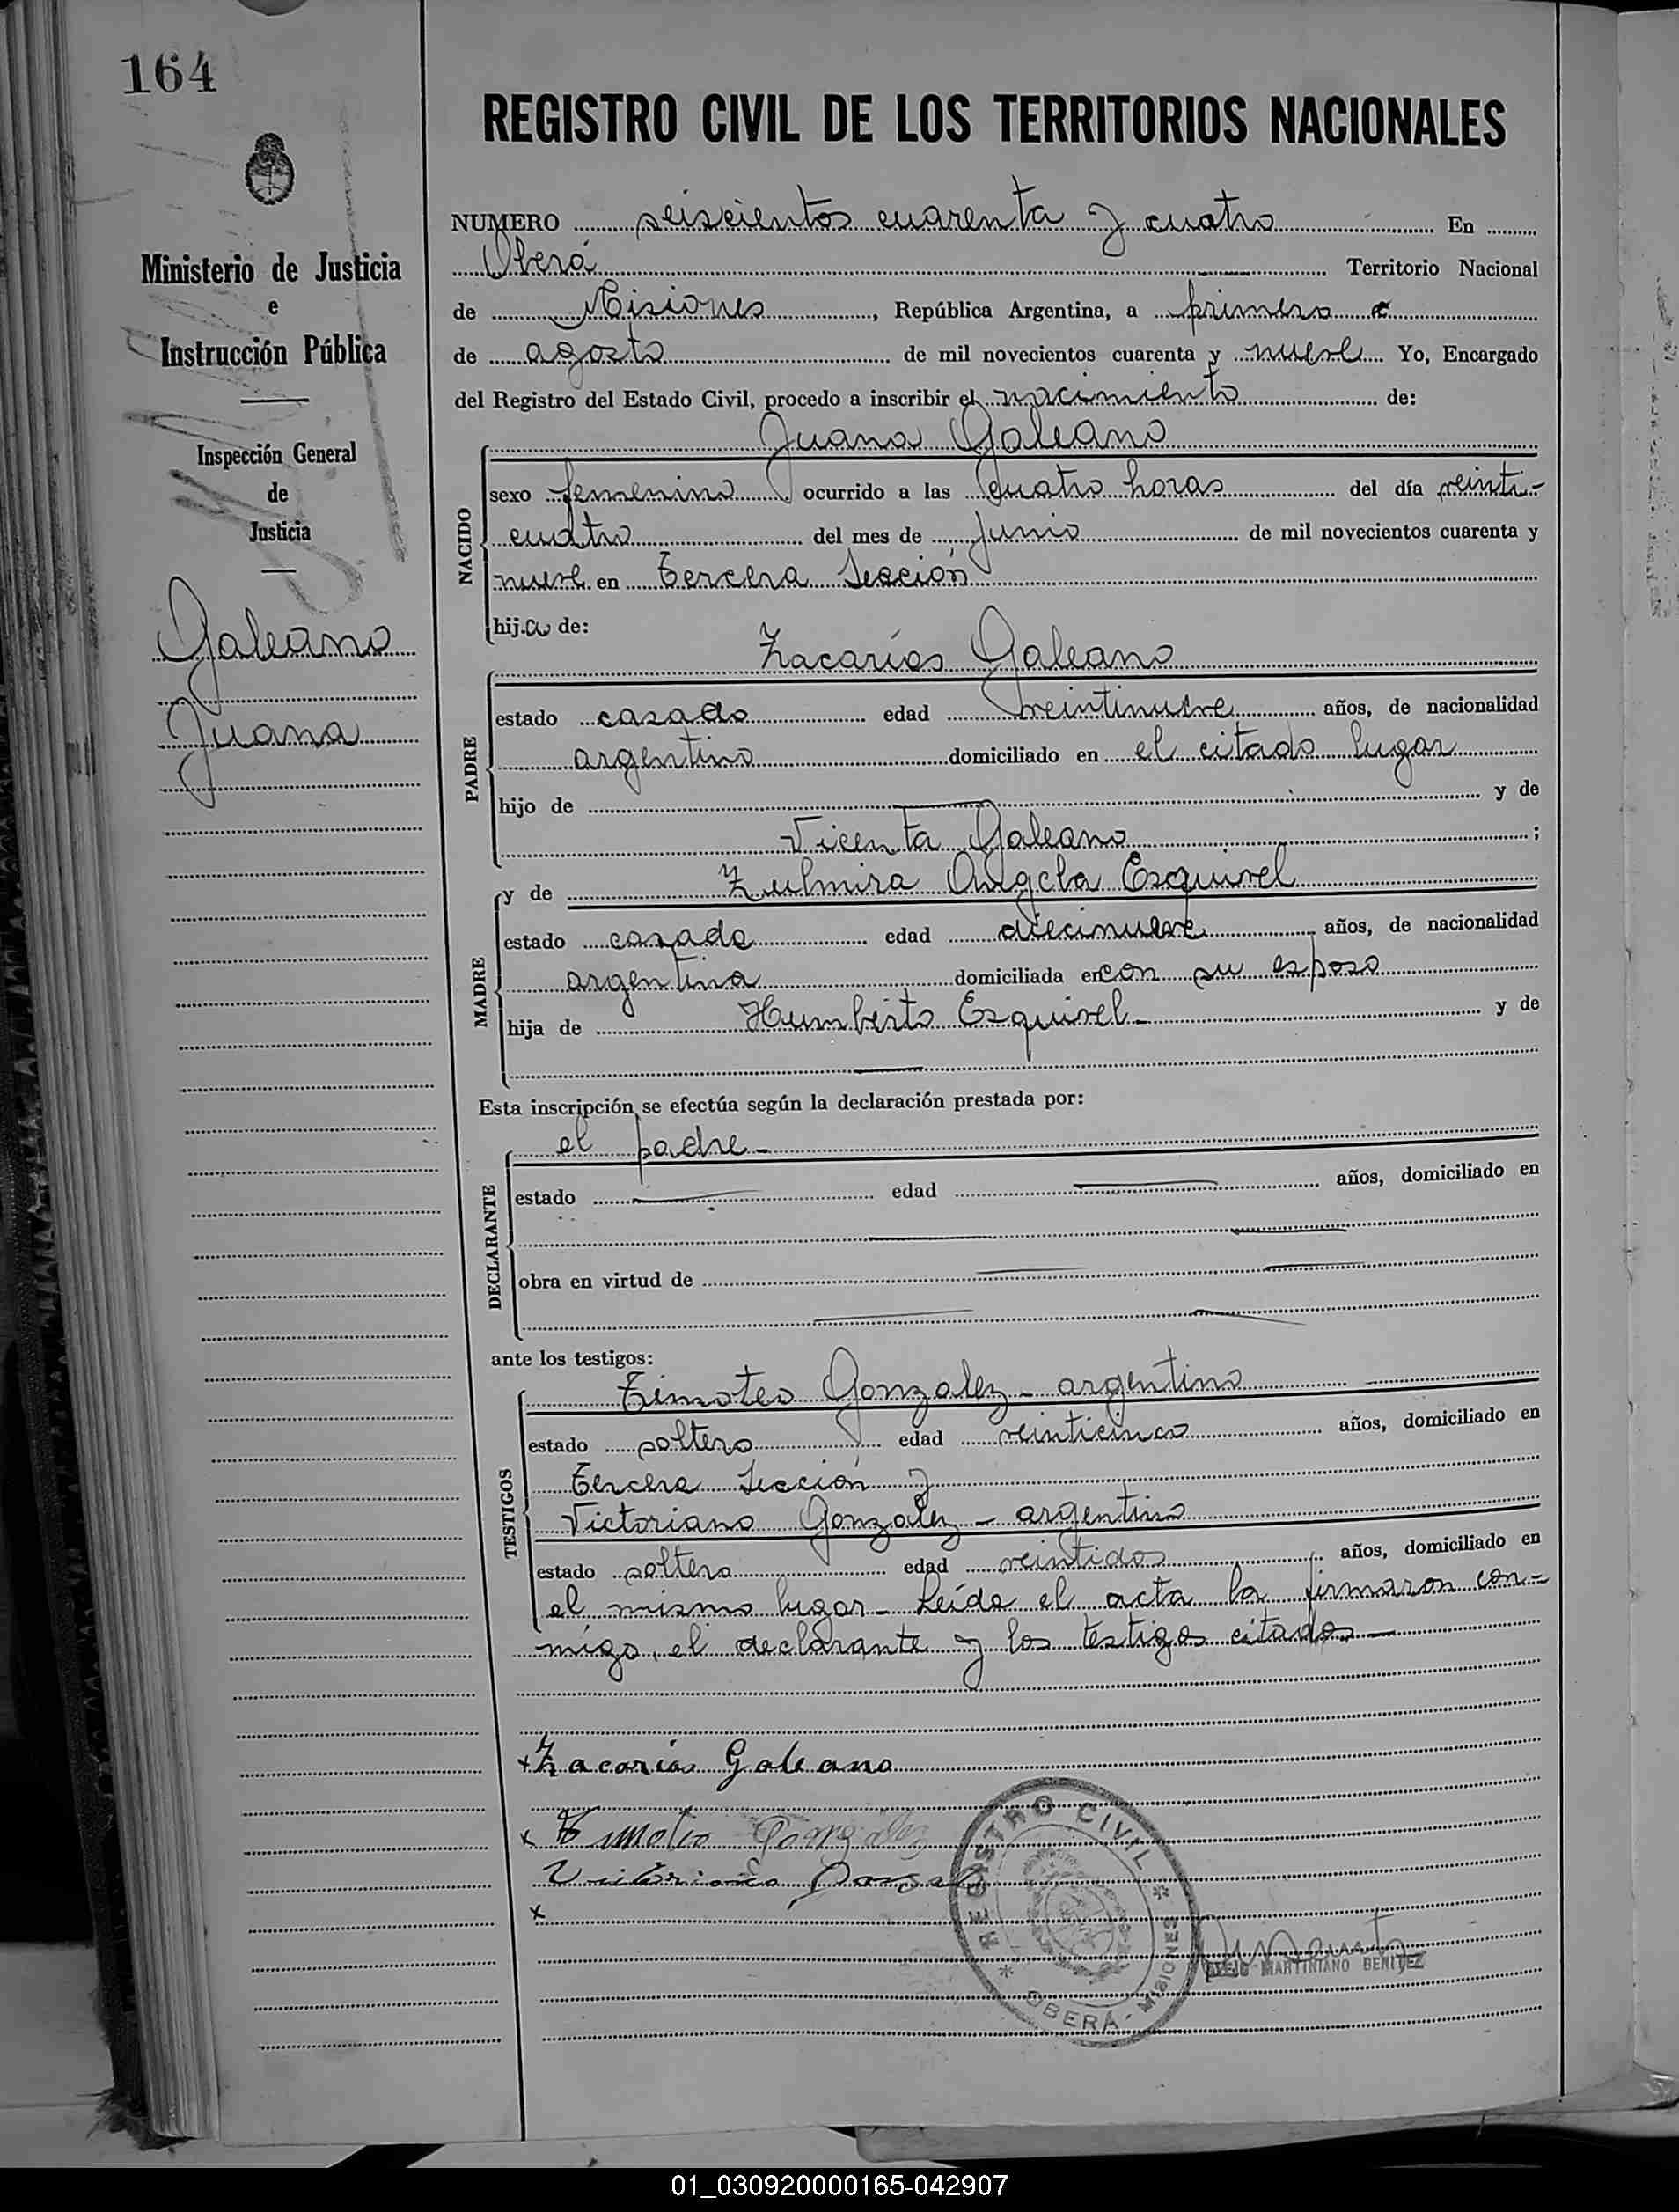 164
REGISTRO CIVIL DE LOS TERRITORIOS NACIONALES
Ministerio de Justicia
e
Instrucción Pública
Inspección General
de
Justicia
Galeano
Juana
NUMERO seiscientos cuarenta y cuatro En
Oberá Territorio Nacional
de Misiones, República Argentina, a primero
de agosto de mil novecientos cuarenta y nueve Yo, Encargado
del Registro del Estado Civil, procedo a inscribir el nacimiento de:
Juana Galeano
NACIDO
sexo femenino ocurrido a las cuatro horas del día veinti-
cuatro del mes de Junio de mil novecientos cuarenta y
nueve en Tercera Sección
hija de:
Zacarías Galeano
PADRE
estado casado edad veintinueve años, de nacionalidad
argentino domiciliado en el citado lugar
hijo de y de
Vicenta Galeano;
MADRE
y de Zulmira Angela Esquivel
estado casada edad diecinueve años, de nacionalidad
argentina domiciliada en con su esposo
hija de Humberto Esquivel- y de
Esta inscripción se efectúa según la declaración prestada por:
el padre-
DECLARANTE
estado edad años, domiciliado en
obra en virtud de
ante los testigos:
TESTIGOS
Timoteo Gonzalez - argentino
estado soltero edad veinticinco años, domiciliado en
Tercera Sección y
Victoriano Gonzalez - argentino
estado soltero edad veintidos años, domiciliado en
el mismo lugar - Leída el acta la firmaron con-
migo, el declarante y los testigos citados-
+ Zacarias Galeano
x Timoteo Gonzalez
x
REGISTRO CIVIL
* OBERÁ - MISIONES *
MARTINIANO BENITEZ
01_030920000165-042907